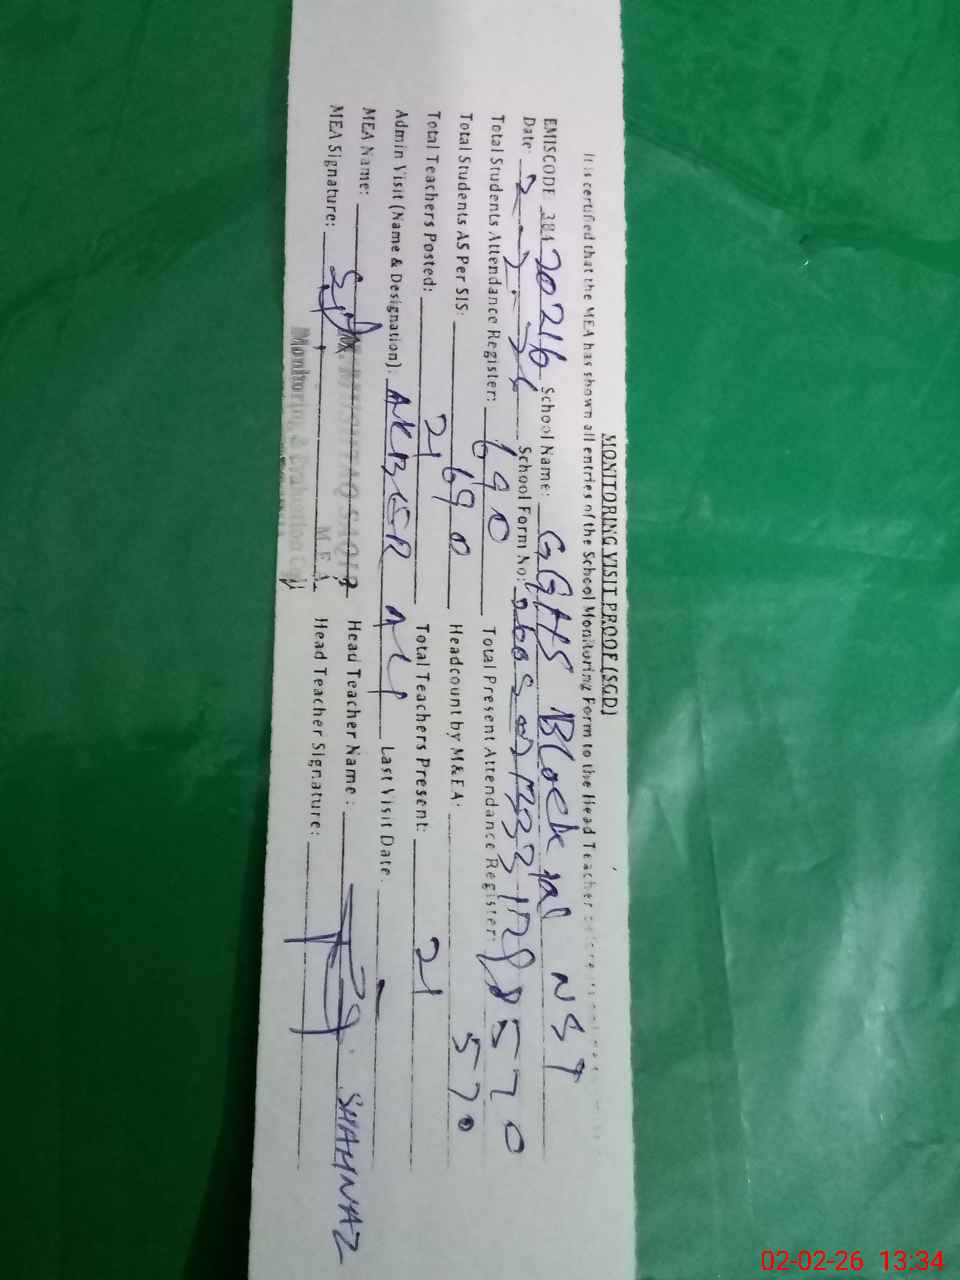 MONITORING VISIT PROOF (SGD)
It is certified that the MEA has shown all entries of the School Monitoring Form to the Head Teacher
EMISCODE 38120216 School Name: GGHS Block No1 NST
Date: 2-2-26 School Form No:
Total Students Attendance Register: 690 Total Present Attendance Register: 570
Total Students AS Per SIS: 690 Headcount by M&EA: 570
Total Teachers Posted: 21 Total Teachers Present: 21
Admin Visit (Name & Designation). AKBER ALI Last Visit Date. -
MEA Name: Head Teacher Name: SHAHNAZ
MEA Signature: M.E.A Head Teacher Signature:
Monitoring & Evaluation Cell
02-02-26 13:34